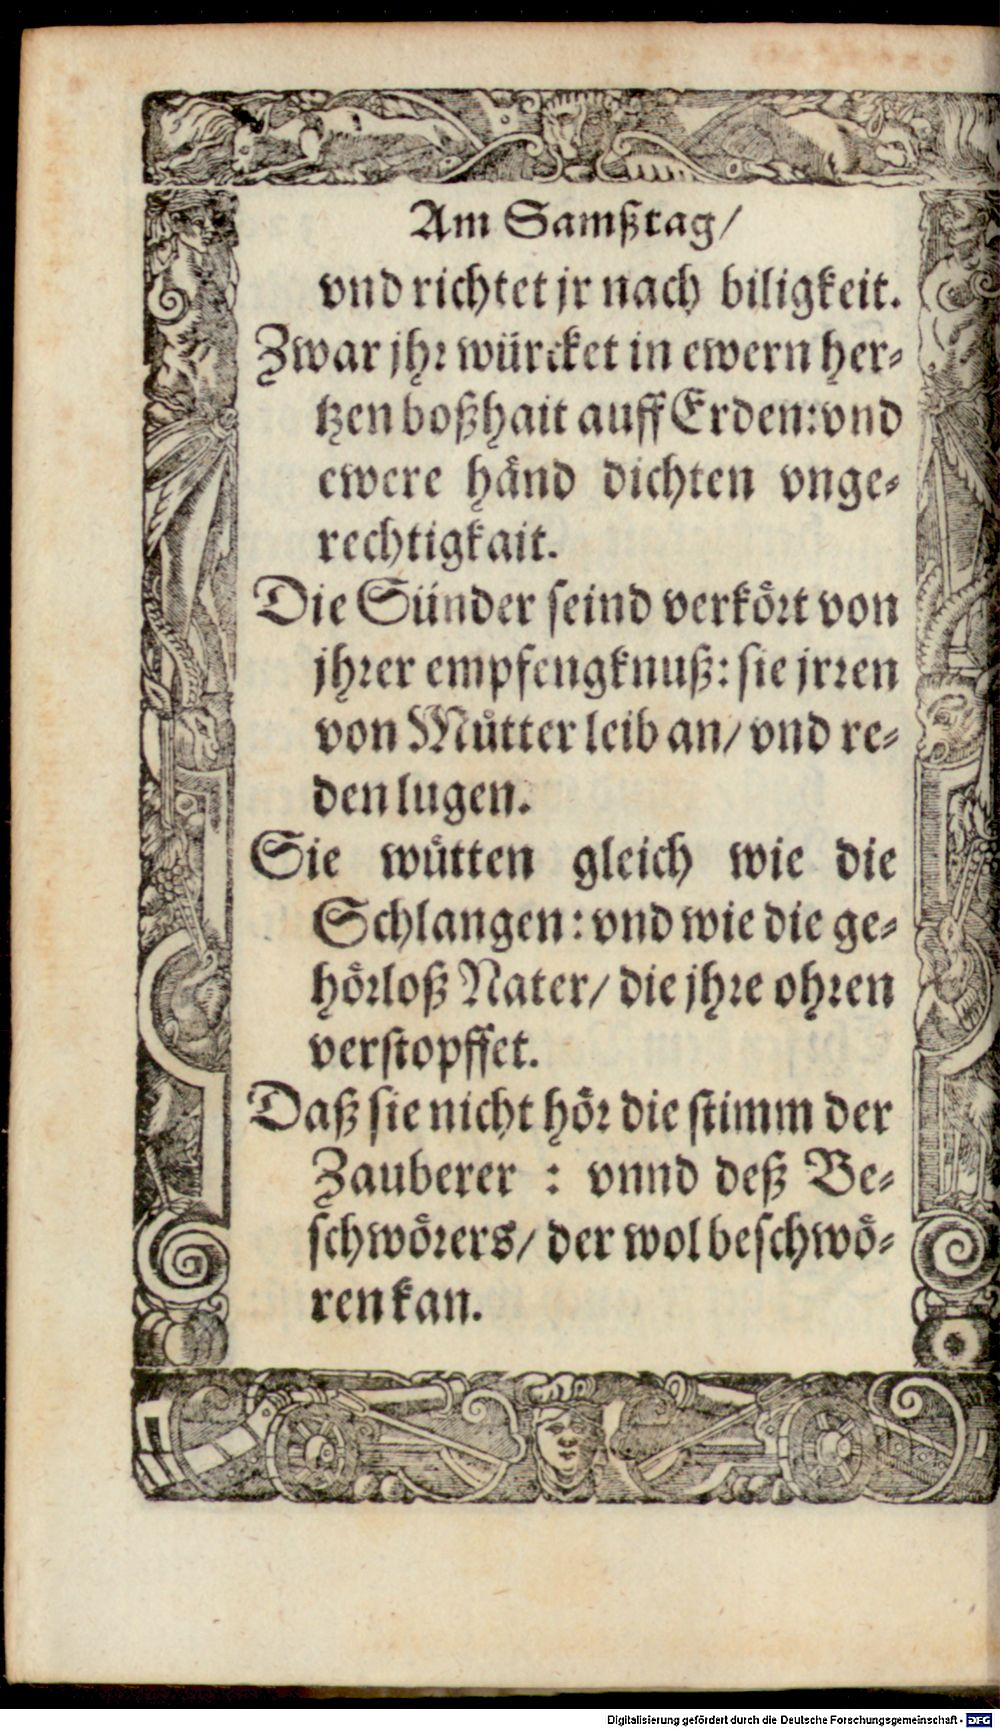 Am Samßtag/
vnd richtet jr nach biligkeit.
Zwar jhr würcket in ewern her⸗
tzen boßhait auff Erden: vnd
ewere händ dichten vnge⸗
rechtigkait.
Die Sünder seind verkört von
jhrer empfengknuß: sie jrren
von Můtter leib an/ vnd re⸗
den lugen.
Sie wütten gleich wie die
Schlangen: vnd wie die ge⸗
hörloß Nater/ die jhre ohren
verstopffet.
Daß sie nicht hör die stimm der
Zauberer : vnnd deß Be⸗
schwörers/ der wol beschwö⸗
ren kan.
Digitalisierung gefördert durch die Deutsche Forschungsgemeinschaft - DFG